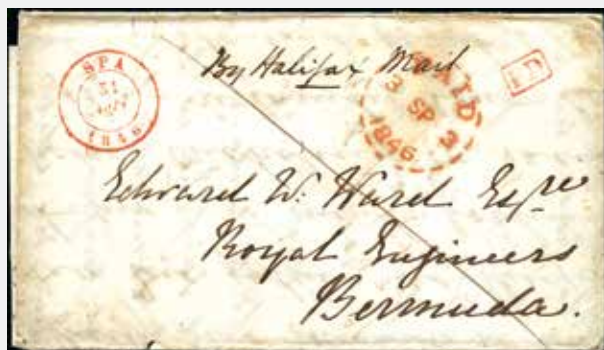 SPA
31
AOUT
1846
By Halifax Mail
PAID
3 SP 3
1846
PD
Edward W. Ward Esqre
Royal Engineers
Bermuda.